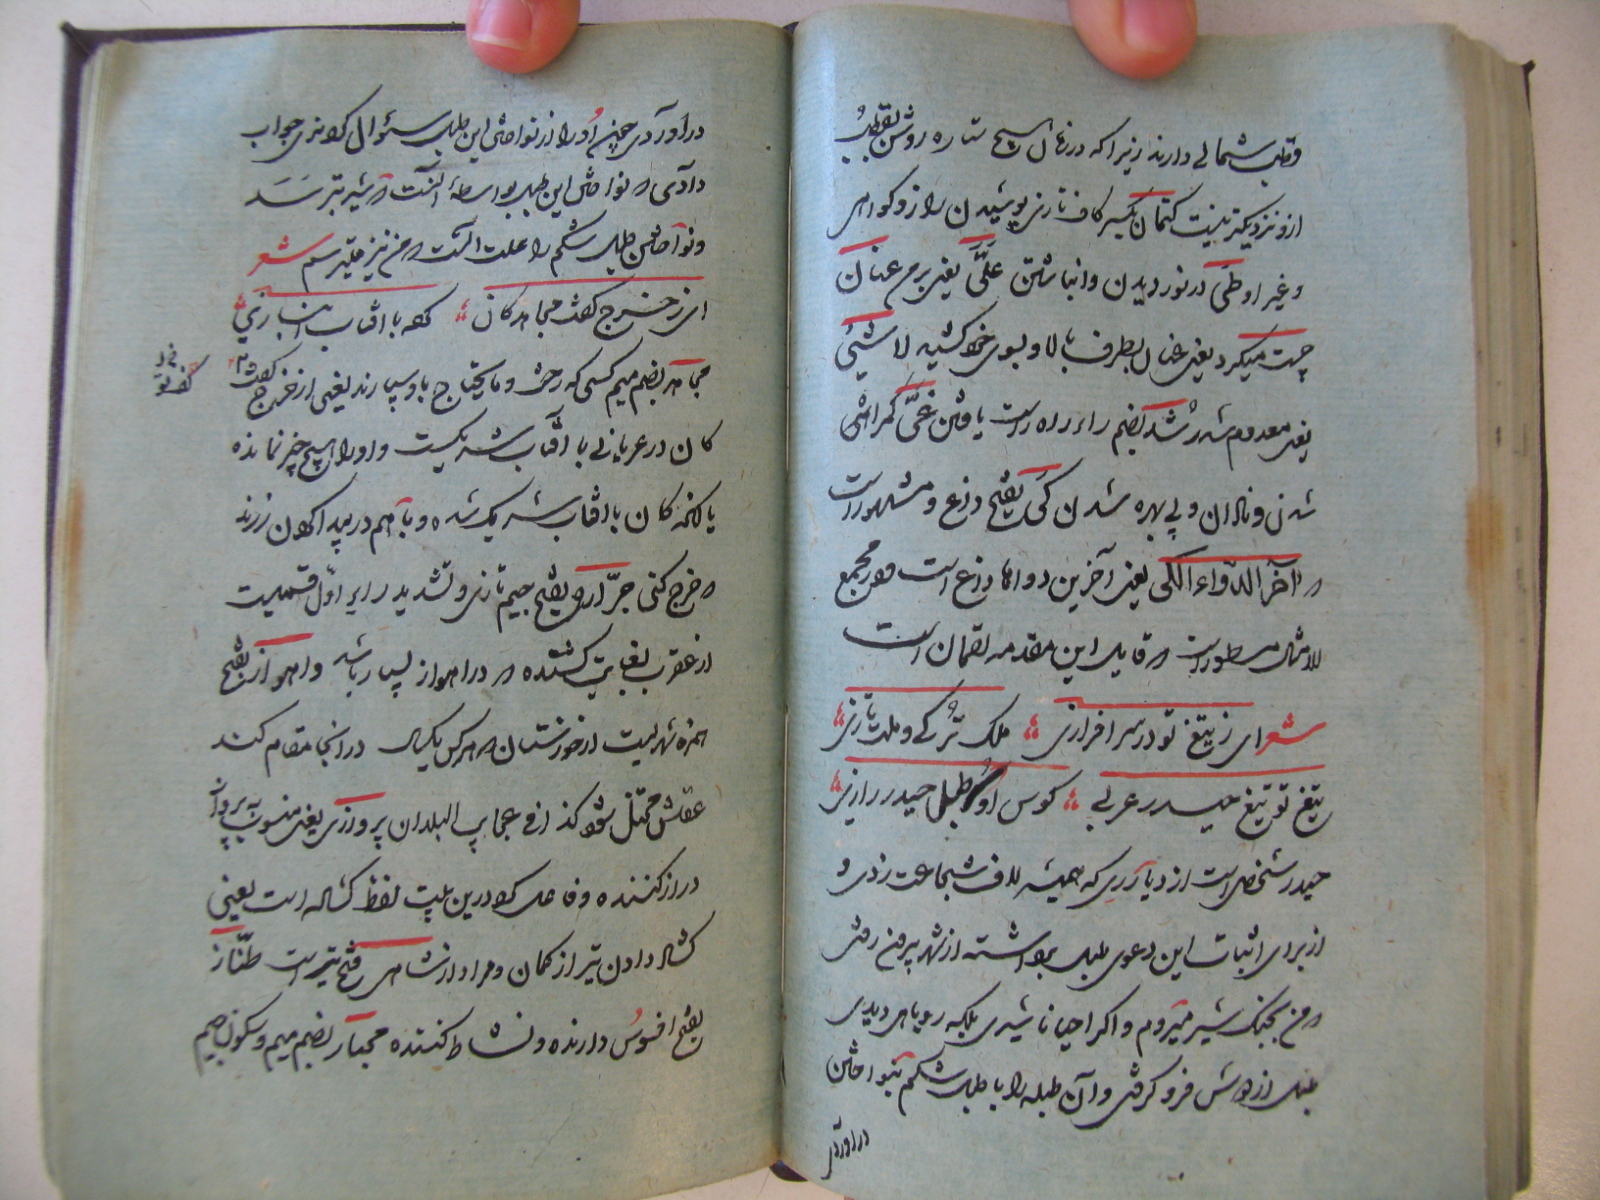 وقطب شمالی دارند زیرا که در نهال هیچ ستاره روشن بقطب
ازو نزدیکتر نیست کتمان بکسر کاف تازی پوشیدن راز و گواهی
و غیر او طی در نوردیدن و انباشتن علی یعنی بر من عنان
چست میکرد یعنی عنان بطرف بالا و بسوی خود کشید لا شیٔ
یعنی معدوم شد رشد بضم راء راه راست یافتن غی گمراهی
شدن و نادان و بی بهره شدن کی بفتح داغ و مشهور است
آخر الدواء الکی یعنی آخرین دواها داغ است در مجمع
الامثال مسطور است و قایل این مقدمه لقمان است
شعر ای ز تیغ تو در سرافرازی ملک ترکی و ملت تازی
تیغ تو تیغ حیدر عربی کوس او طبل حیدر رازی
حیدر شخصی است از دیار ری که همیشه لاف شجاعت زدی و
از برای اثبات این دعوی طبلی برداشته از شهر بیرون رفتی
که من بجنگ شیر میروم و اگر احیانا شیری بلکه روباهی دیدی
طبل از دوش فرو گرفتی و آن طبله را با طبل شکم بنواختن
در آورد
در آوردی چون او را از نواختن این طبل سئوال کردندی جواب
دادی که نواختن این طبل بواسطه آنست که شیر بترسد
و نواختن طبل شکم را علت آنست که من نیز میترسم شعر
ای ز خرج کفت مجاهز کان گفته با آفتاب انبازی
مجاهز بضم میم کسی که رخت و مایحتاج باو سپارند یعنی از خرج کفت
کان در عریانی با آفتاب شریکست و او را هیچ چیز نمانده
یا آنکه کان با آفتاب شریک شده و با هم در پیدا کردن زرند
که خرج کنی جراره بفتح جیم تازی و تشدید راء اول قسمیست
از عقرب بغایت کشنده که در اهواز بسیار باشد و اهواز بفتح
همزه شهریست از خوزستان که هر کس یکسال در انجا مقام کند
عقلش مختل شود کذا فی عجایب البلدان پروازی یعنی منسوب به پرواز
دراز کننده و فاعل کرد درین بیت لفظ گشاد است یعنی
گشاد دادن تیر از کمان و مراد از شاهی فتح تیر است طناز
بفتح افسوس دارنده و نشاط کننده مجتاز بضم میم و سکون جیم